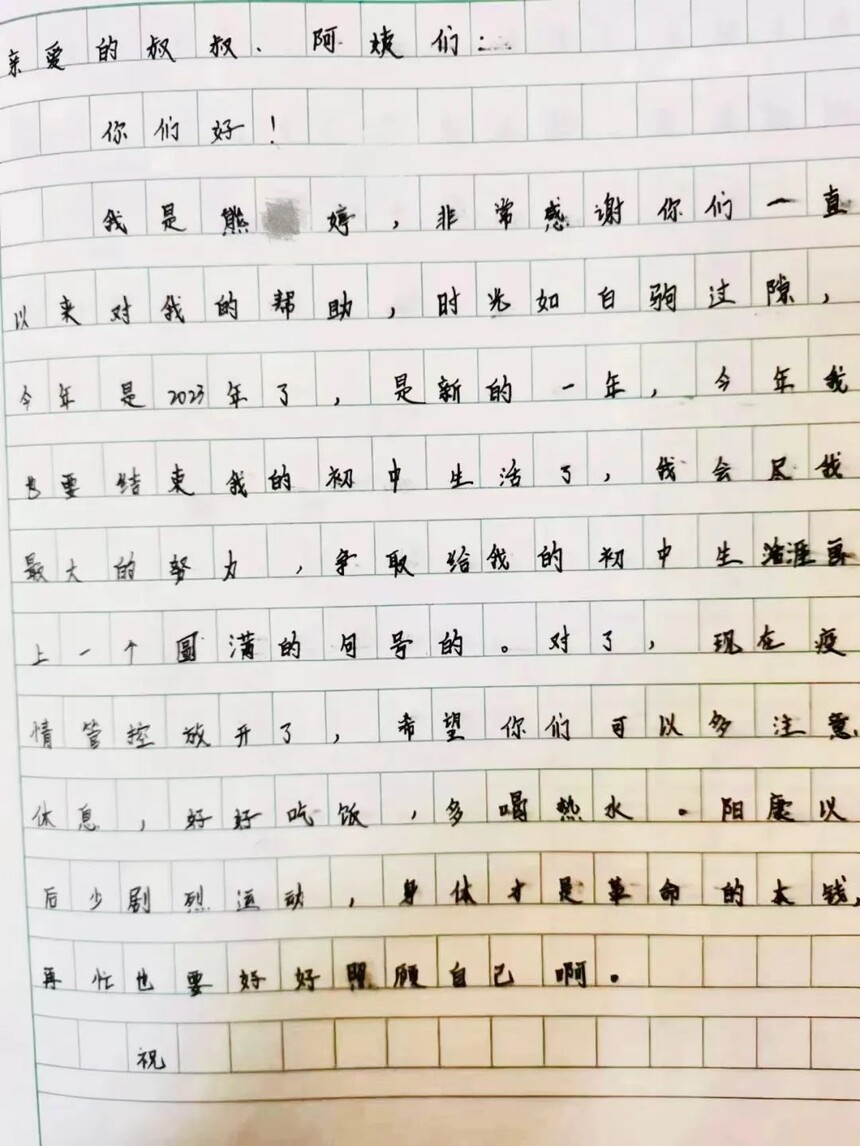 亲爱的叔叔、阿姨们：
你们好！
我是熊婷，非常感谢你们一直
以来对我的帮助，时光如白驹过隙，
今年是2023年了，是新的一年，今年我
也要结束我的初中生活了，我会尽我
最大的努力，争取给我的初中生涯画
上一个圆满的句号的。对了，现在疫
情管控放开了，希望你们可以多注意
休息，好好吃饭，多喝热水。阳康以
后少剧烈运动，身体才是革命的本钱，
再忙也要好好照顾自己啊。
祝